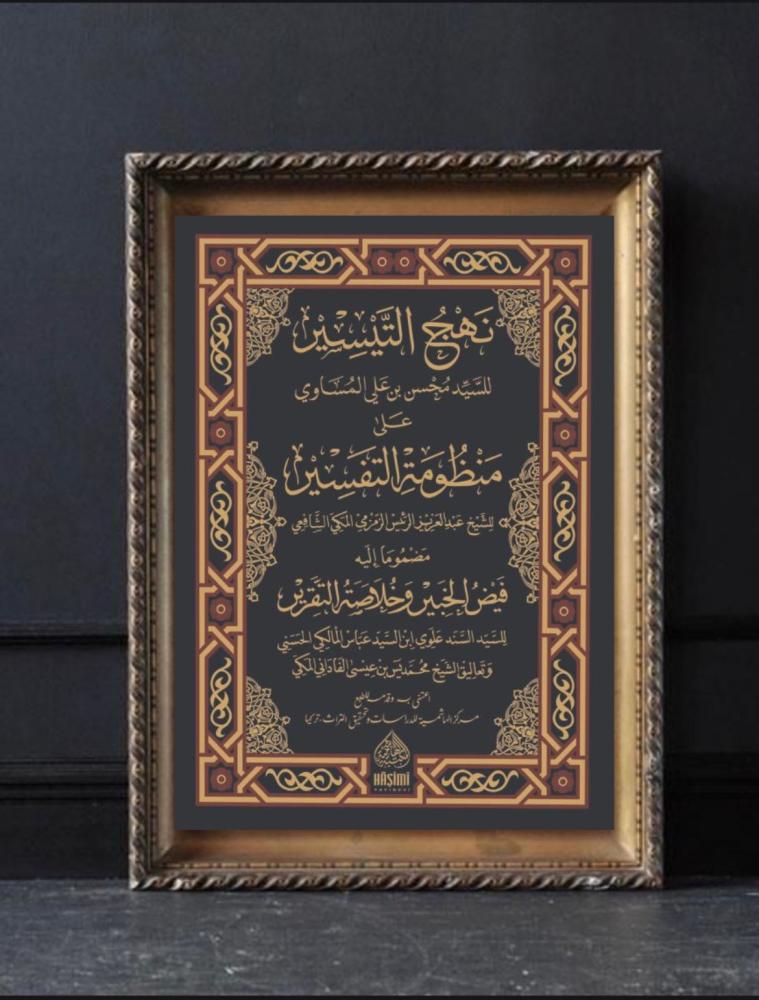 نَهْجُ التَّيْسِيْر
للسَّيِّد مُحْسن بن عَلي المُسَاوي
عَلىٰ
مَنْظُومَةِ التفَسِيْر
للشَّيْخ عَبدالعَزيز الرئيس الزمزمي المكي الشَّافِعي
مَضمُومًا إلَيه
فَيْضُ الخَبِيْر وَخُلَاصَةُ التَّقْرِيْر
للسَيّد السَنَد عَلَوي ابن السَيّد عَبّاس المَالكي الحَسَني
وَتَعَاليق الشَيْخ محَُمَّد يَس بن عِيسىٰ الفَادَاني المكِّي
اعتنى به وقدم للطبع
مركز الهاشمية للدراسات وتحقيق التراث، تركيا
HÂŞİMİ
YAYINEVİ